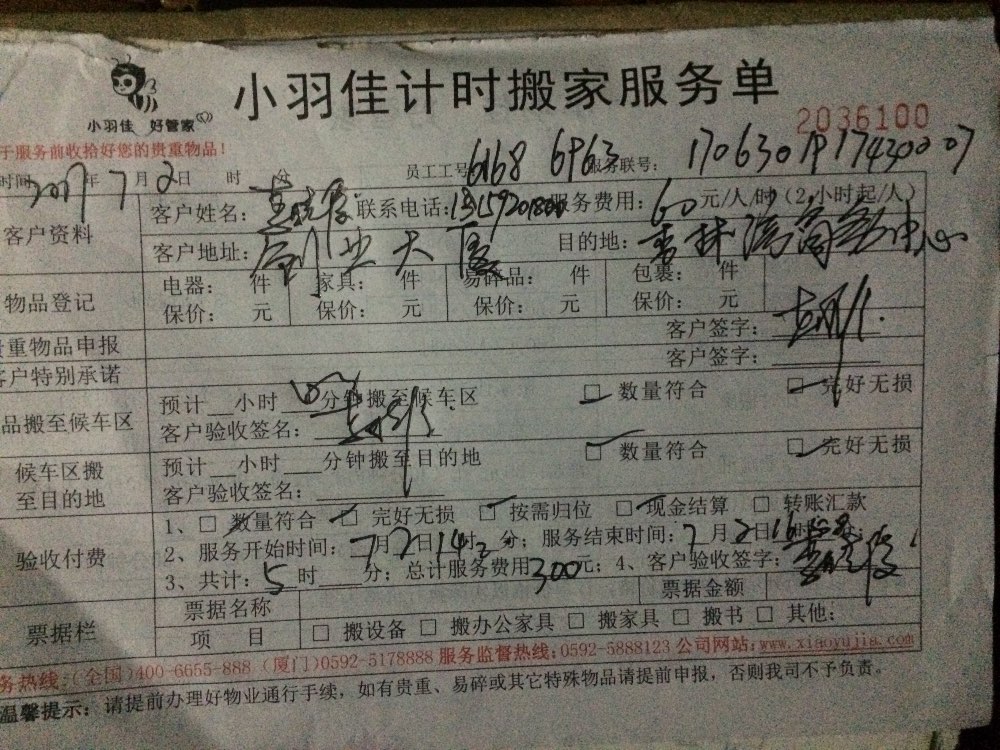 小羽佳计时搬家服务单
小羽佳 好管家
2036100
于服务前收拾好您的贵重物品！
时间 2017年7月2日 时 分 员工工号 6168 6963 服务联号：
客户资料
客户姓名： 联系电话： 服务费用：60元/人/时（2小时起/人）
客户地址：创业大厦 目的地：杏林湾商务中心
物品登记
电器： 件 家具： 件 易碎品： 件 包裹： 件
保价： 元 保价： 元 保价： 元 保价： 元
贵重物品申报 客户签字：
客户特别承诺 客户签字：
品搬至候车区
预计__小时 分钟搬至候车区 □ 数量符合 □ 完好无损
客户验收签名：
候车区搬
至目的地
预计__小时____分钟搬至目的地 □ 数量符合 □ 完好无损
客户验收签名：
验收付费
1、□ 数量符合 □ 完好无损 □ 按需归位 □ 现金结算 □ 转账汇款
2、服务开始时间：7月2日14时 分；服务结束时间：7月2日16时
3、共计：5时____分；总计服务费用300元；4、客户验收签字：
票据栏
票据名称 票据金额
项 目 □ 搬设备 □ 搬办公家具 □ 搬家具 □ 搬书 □ 其他：
务热线：（全国)400-6655-888（厦门)0592-5178888 服务监督热线:0592-5888123 公司网站:www.xiaoyujia.com
温馨提示：请提前办理好物业通行手续，如有贵重、易碎或其它特殊物品请提前申报，否则我司不予负责。